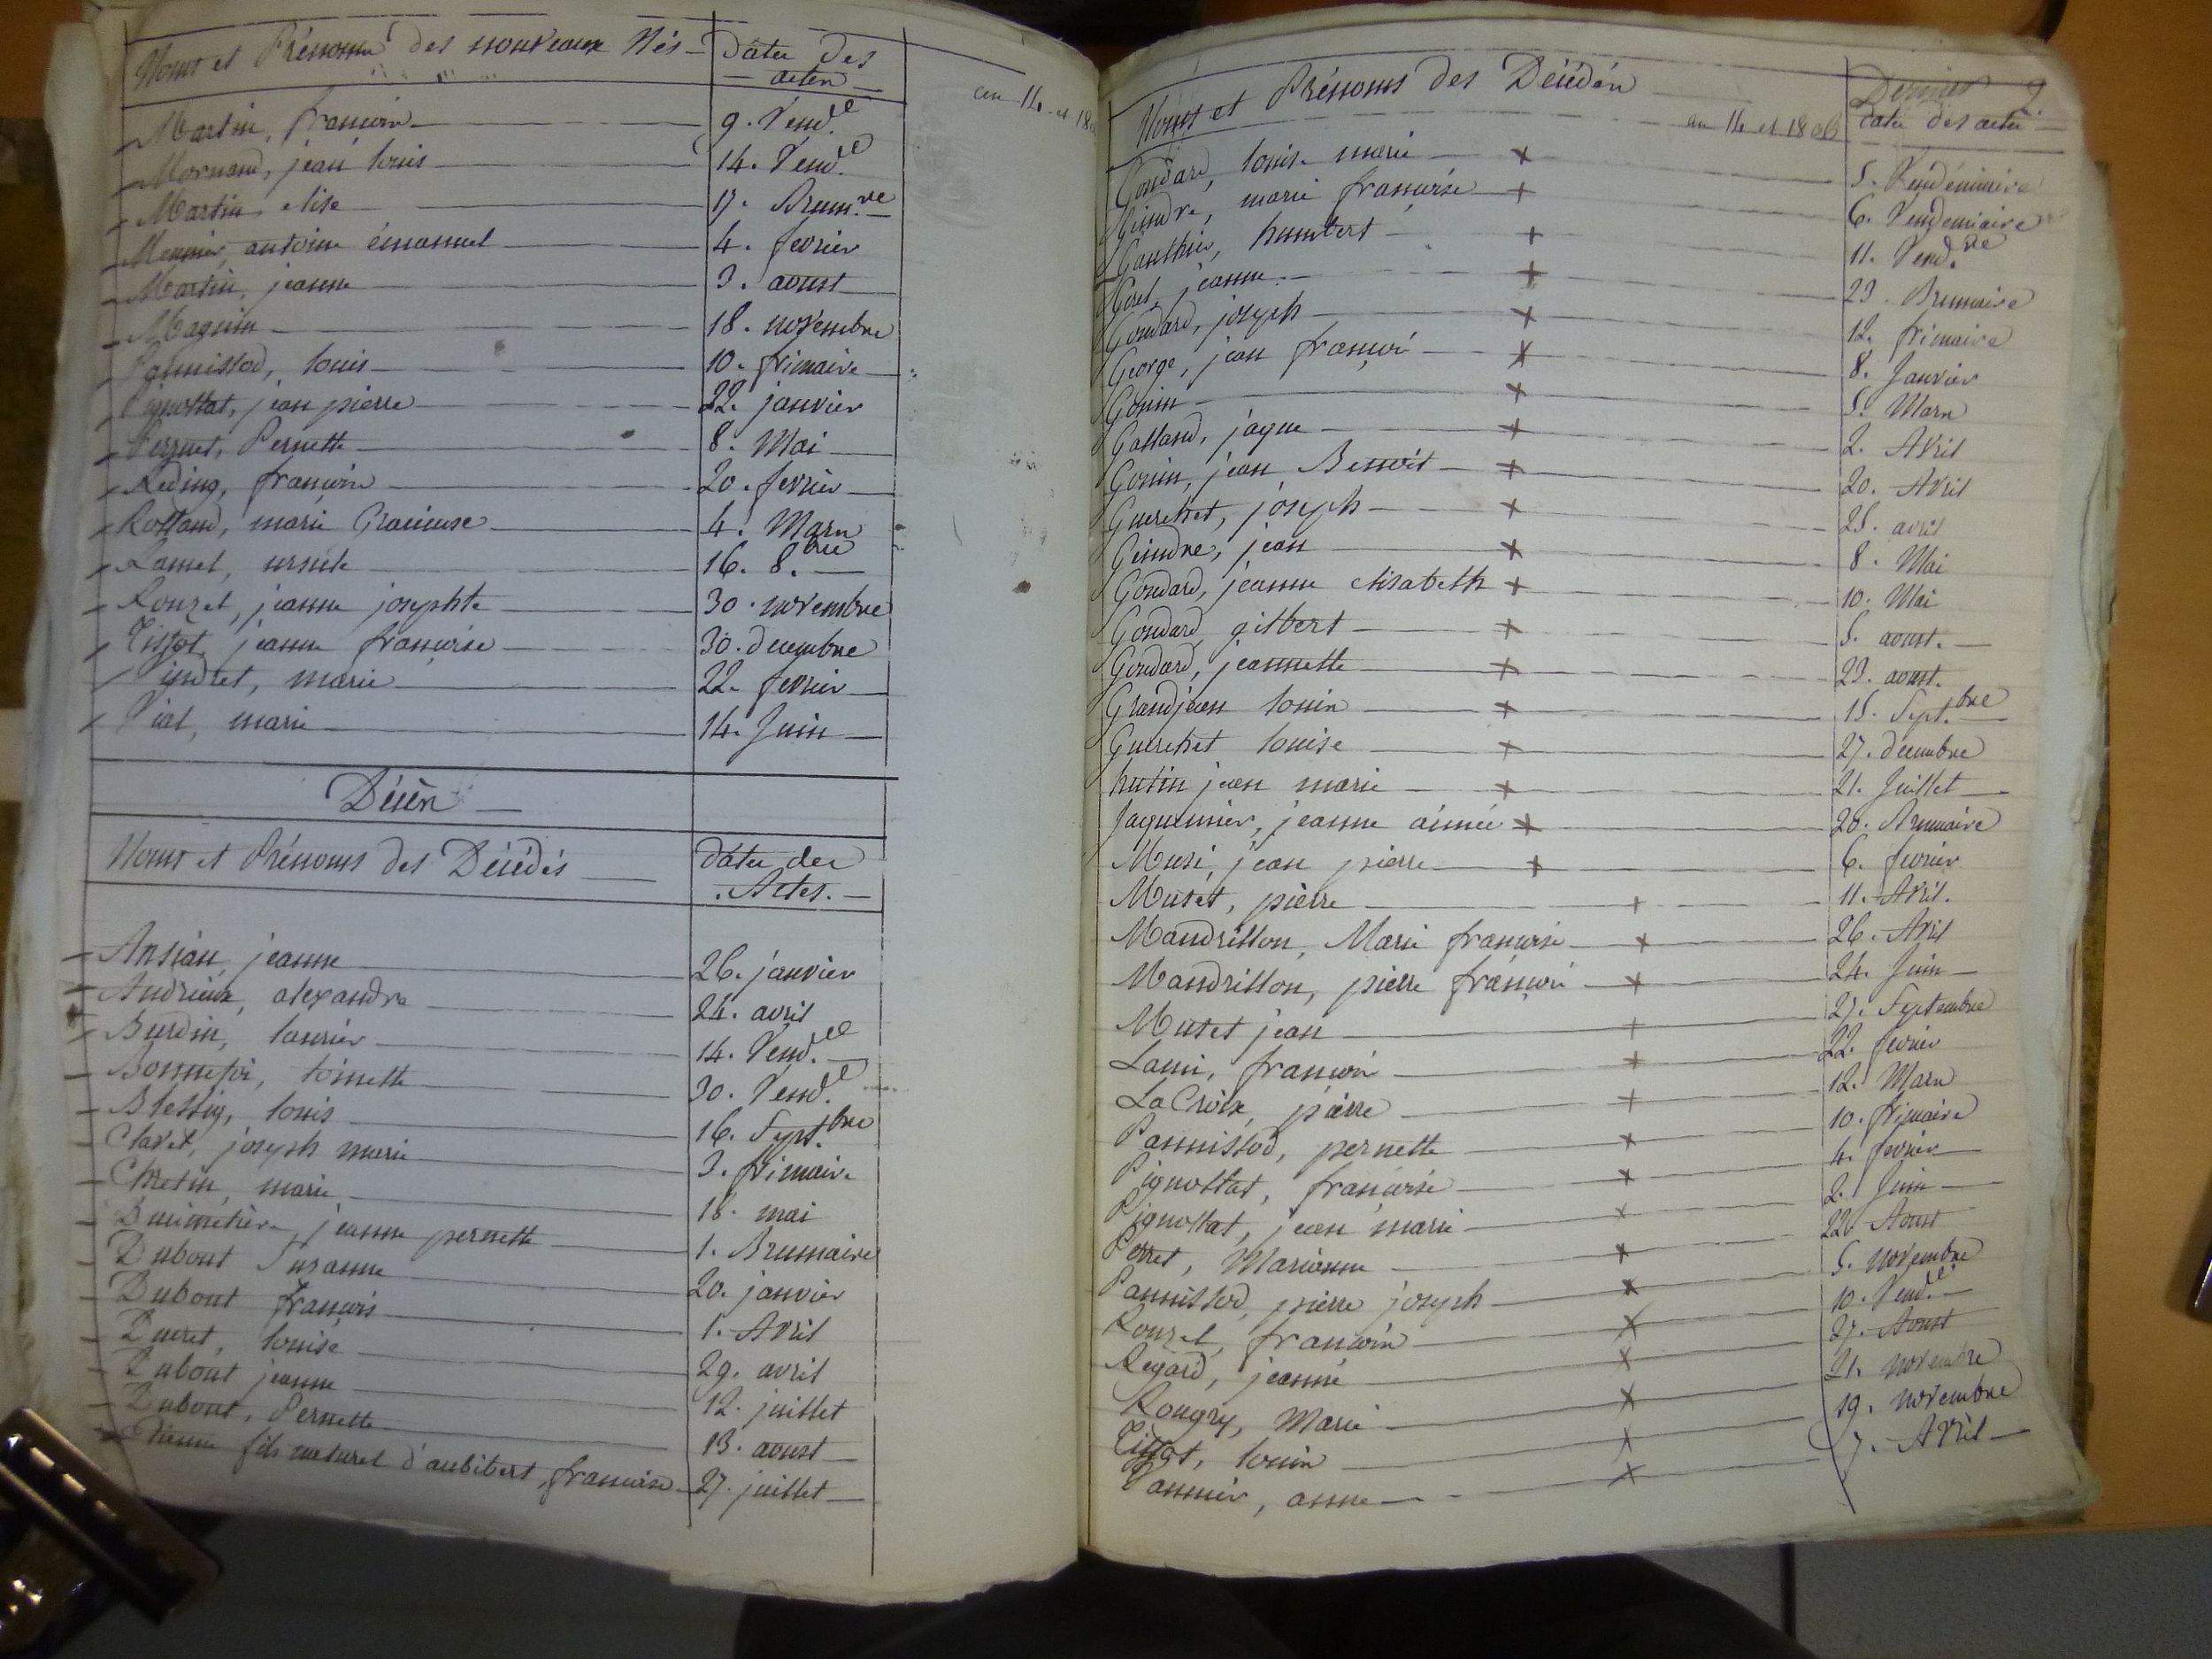 Noms et Prénoms des nouveaux Nés
Dates des
actes
Martin, francois 9. Vend.re
Mornand, jean louis 14. Vend.re
Martin elise 17. Brum.re
Meunier, antoine émanuel 4. fevrier
Martin, jeanne 3. aoust
Magnin 18. novembre
Pannissod, louis 10. frimaire
Pignollat, jean pierre 22. janvier
Pernette 8. Mai
Reding, francois 20. fevrier
Rolland, marie Gracieuse 4. Mars
Ramel, ursule 16. 8.bre
Rouzet, jeanne josephte 30. novembre
Tissot jeanne francoise 30. decembre
marie 22. fevrier
Vial, marie 14. Juin
Décès
Noms et Prénoms des Décédés
Dates des
Actes.
Ansian, jeanne 26. janvier
Andrieux, alexandre 24. avril
Burdin, 14. Vend.re
Bonnefoi, toinette 30. Vend.re
Blessig, louis 16. Sept.bre
Claret, joseph marie 3. frimaire
Chretin, marie 18. mai
jeanne pernette 1. Brumaire
Dubout Suzanne 20. janvier
Dubout francois 1. Avril
Ducret, louise 29. avril
Dubout jeanne 12. juillet
Dubout, Pernette 13. aoust
Etienne fils naturel d'aubibert, francoise 27. juillet
an 14 et 18
Noms et Prénoms des Décédés
an 14 et 1806
Dernier 2
Dates des actes
Goudard, louise marie + 5. Vendémiaire
Geindre, marie francoise + 6. Vendemiaire
Gauthier, humbert + 11. Vend.re
jeanne + 23. Brumaire
Goudard, joseph + 12. frimaire
George, jean francois + 8. Janvier
Gonin + 5. Mars
Galland, jaque + 2. Avril
Gonin, jean Benoit + 20. Avril
Guerchet, joseph + 25. avril
Geindre, jean + 8. Mai
Goudard, jeanne elisabeth + 10. Mai
Goudard gilbert + 5. aoust.
Goudard, jeannette + 23. aoust.
Grandjean louis + 15. Sept.bre
Guerchet louise + 27. decembre
hutin jean marie + 21. Juillet
Jaquemier, jeanne aimée + 20. Brumaire
jean pierre + 6. fevrier
Mutet, pierre + 11. Avril.
Mandrillon, Marie francoise + 26. Avril
Mandrillon, pierre francois + 24. Juin
Mutet jean + 27. Septembre
Lami, francois + 22. fevrier
LaCroix, pierre + 12. Mars
Pannissod, pernette + 10. frimaire
Pignollat, francoise + 4. fevrier
Pignollat, jean marie + 2. Juin
Perret, Marianne + 22. Aoust
Pannissod, pierre joseph + 5. novembre
Rouzet, francois + 10. Vend.re
Regard, jeanne + 27. Aoust
Rougry, Marie + 21. novembre
Tissot, louis + 19. novembre
Vannier, anne + 7. Avril